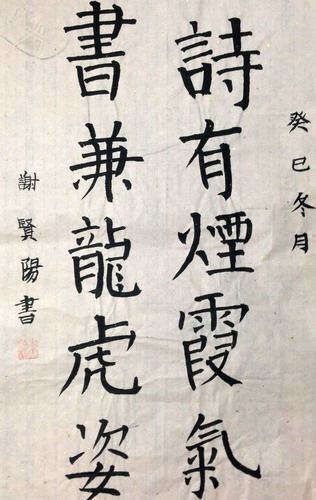 癸巳冬月
詩有煙霞氣
書兼龍虎姿
謝賢陽書